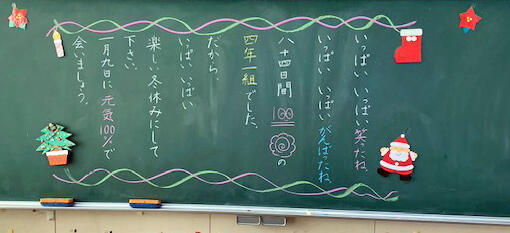 いっぱい いっぱい 笑ったね。
いっぱい いっぱい がんばったね。
八十四日間
100の
四年一組でした。
だから、
いっぱい いっぱい
楽しい 冬休みにして
下さい。
一月九日に 元気100%で
会いましょう。